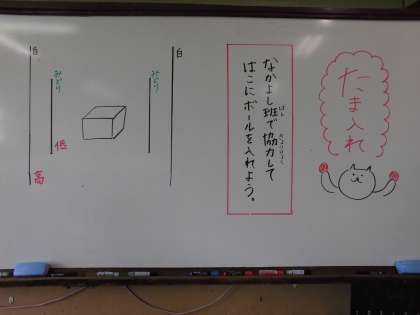 たま入れ
なかよし班で協力して
はこにボールを入れよう。
白
みどり
低
高
みどり
白